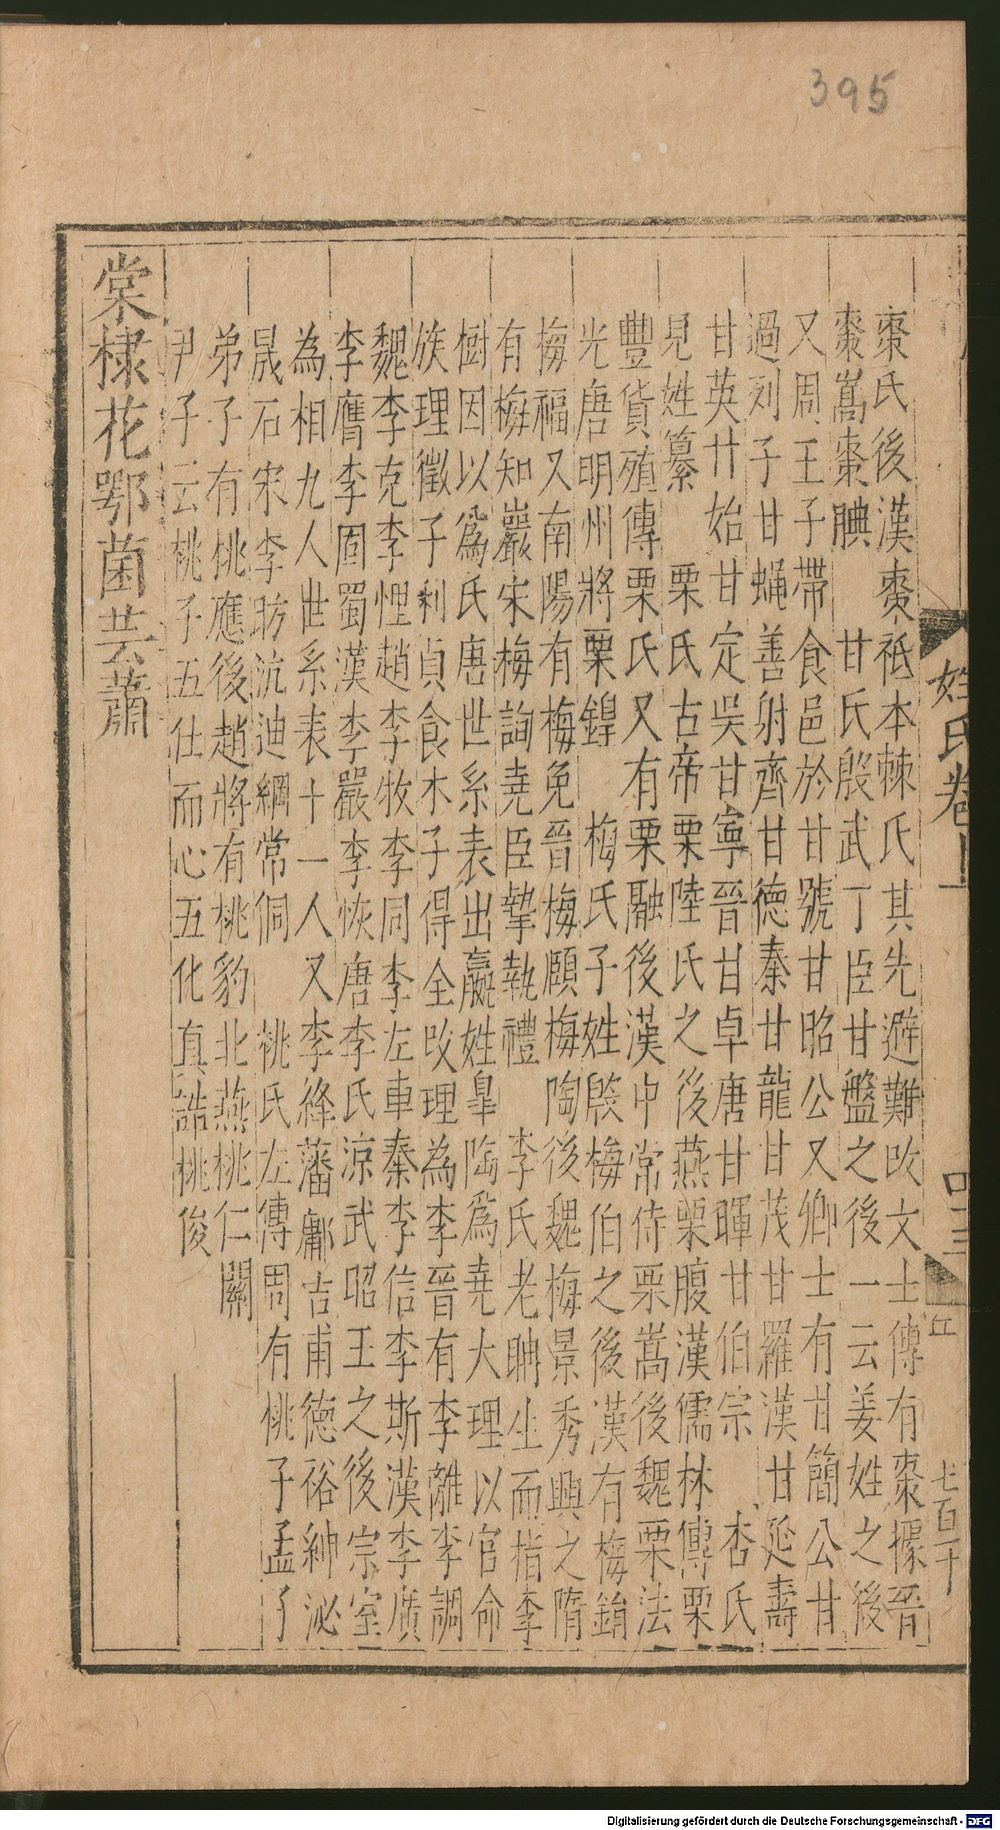 395
姓氏卷上
四三
七百二十
棗氏後漢棗祗本棘氏其先避難改文士傳有棗據晉
棗嵩棗腆　甘氏殷武丁臣甘盤之後一云姜姓之後
又周王子帶食邑於甘號甘昭公又卿士有甘簡公甘
過列子甘蠅善射齊甘德秦甘龍甘茂甘羅漢甘延壽
甘英甘始甘定吳甘寧晉甘卓唐甘暉甘伯宗　杏氏
見姓纂　栗氏古帝栗陸氏之後燕栗腹漢儒林傳栗
豐貨殖傳栗氏又有栗融後漢中常侍栗嵩後魏栗法
光唐明州將栗鍠　梅氏子姓殷梅伯之後漢有梅鋗
梅福又南陽有梅免晉梅頤梅陶後魏梅景秀興之隋
有梅知巖宋梅詢堯臣摯執禮　李氏老聃生而指李
樹因以為氏唐世系表出嬴姓皐陶為堯大理以官命
族理徵子利貞食木子得全改理為李晉有李離李調
魏李克李悝趙李牧李同李左車秦李信李斯漢李廣
李膺李固蜀漢李嚴李恢唐李氏涼武昭王之後宗室
為相九人世系表十一人又李絳藩鄘吉甫德裕紳泌
晟石宋李昉沆迪綱常侗　桃氏左傳周有桃子孟子
弟子有桃應後趙將有桃豹北燕桃仁　關
尹子云桃子五仕而心五化真誥桃俊
棠棣花鄂菌芸蕭
Digitalisierung gefördert durch die Deutsche Forschungsgemeinschaft - DFG